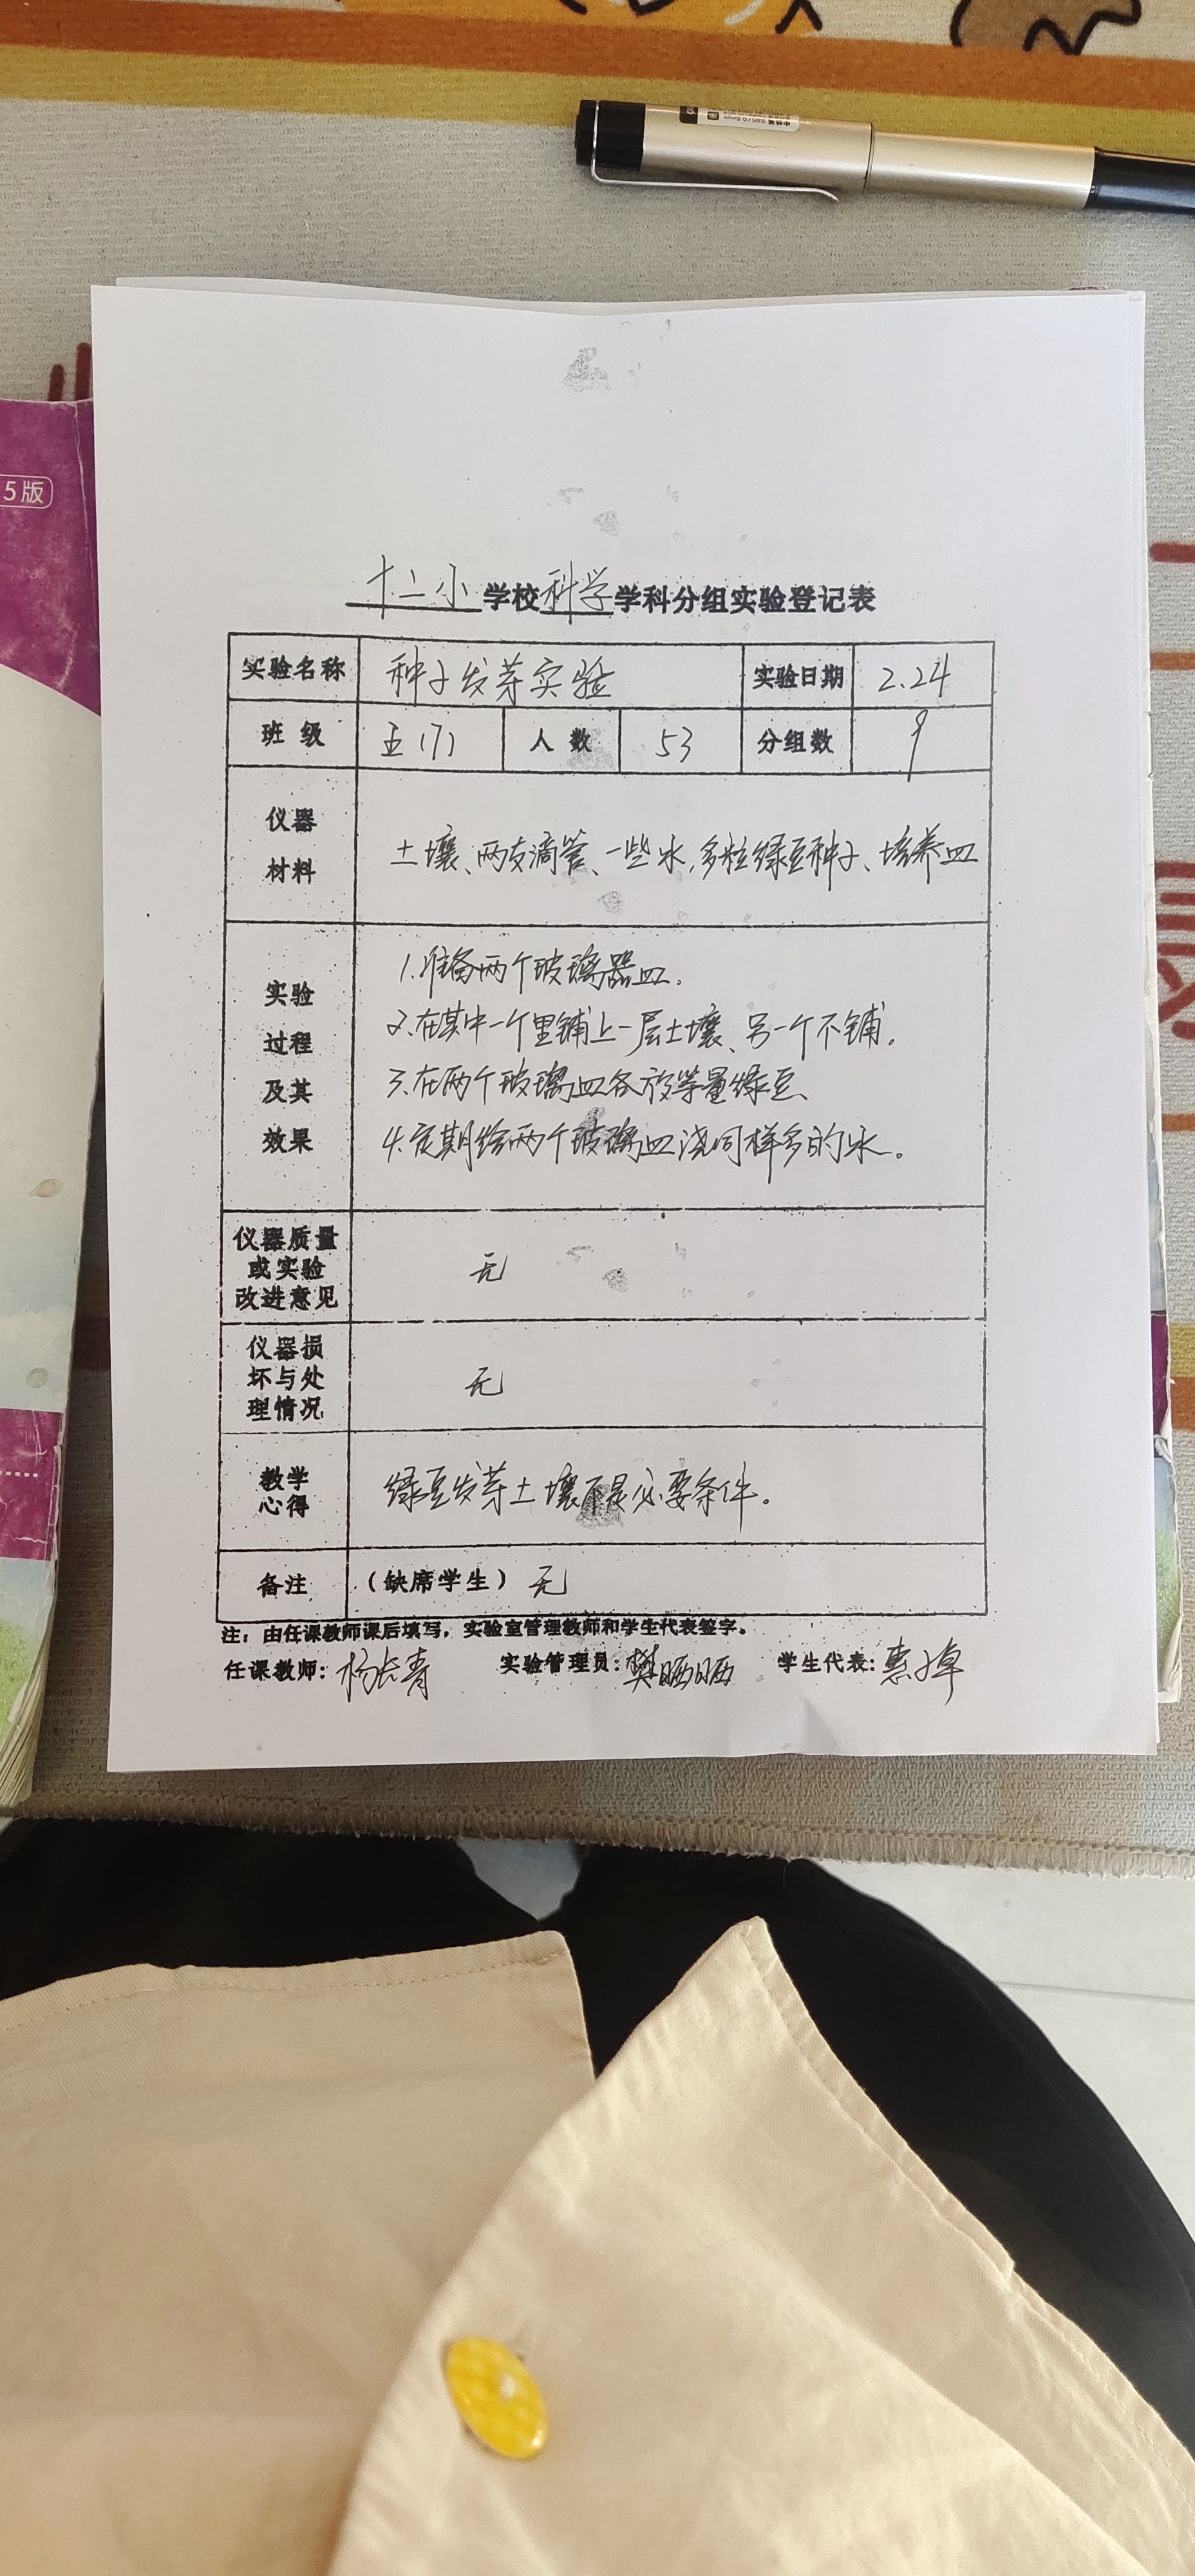 5版
十二小学校科学学科分组实验登记表
实验名称 种子发芽实验 实验日期 2.24
班级 五(1) 人数 53 分组数 9
仪器
材料
土壤、两支滴管、一些水,多粒绿豆种子、培养皿
实验
过程
及其
效果
1.准备两个玻璃器皿.
2.在其中一个里铺上一层土壤、另一个不铺.
3.在两个玻璃皿各放等量绿豆、
4.定期给两个玻璃皿浇同样多的水.
仪器质量
或实验
改进意见
无
仪器损
坏与处
理情况
无
教学
心得
绿豆发芽土壤不是必要条件.
备注 (缺席学生) 无
注:由任课教师课后填写,实验室管理教师和学生代表签字。
任课教师: 杨长青 实验管理员: 樊晒晒 学生代表: 惠子卓